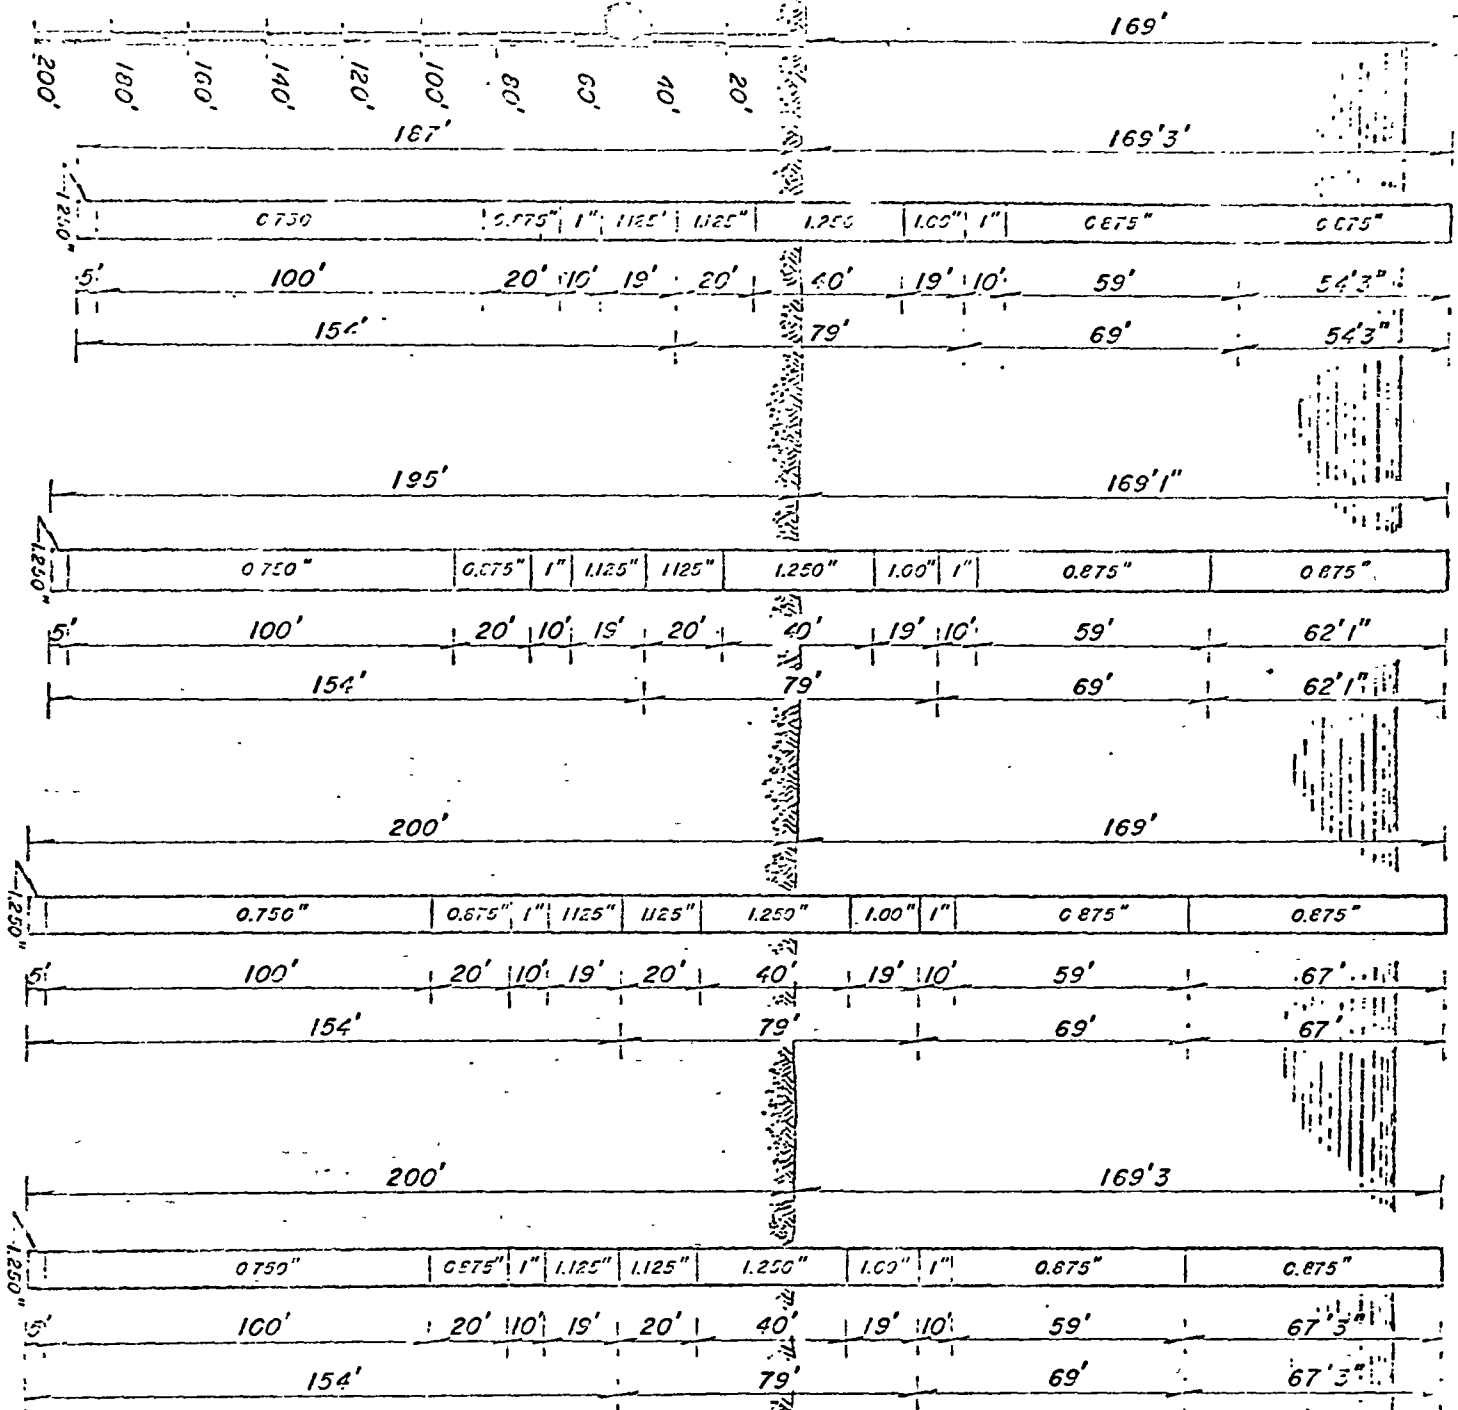 169'
200' 180' 160' 140' 120' 100' 80' 60' 40' 20'
187' 169'3'
1.250"
0.750 0.875" 1" 1.125' 1.125" 1.250 1.00" 1" 0.875" 0.875"
5' 100' 20' 10' 19' 20' 40' 19' 10' 59' 54'3"
154' 79' 69' 54'3"
195' 169'1"
1.250"
0.750" 0.875" 1" 1.125" 1.125" 1.250" 1.00" 1" 0.875" 0.875"
5' 100' 20' 10' 19' 20' 40' 19' 10' 59' 62'1"
154' 79' 69' 62'1"
200' 169'
1.250"
0.750" 0.875" 1" 1.125" 1.125" 1.250" 1.00" 1" 0.875" 0.875"
5' 100' 20' 10' 19' 20' 40' 19' 10' 59' 67'
154' 79' 69' 67'
200' 169'3
1.250"
0.750" 0.875" 1" 1.125" 1.125" 1.250" 1.00" 1" 0.875" 0.875"
5' 100' 20' 10' 19' 20' 40' 19' 10' 59' 67'3"
154' 79' 69' 67'3"